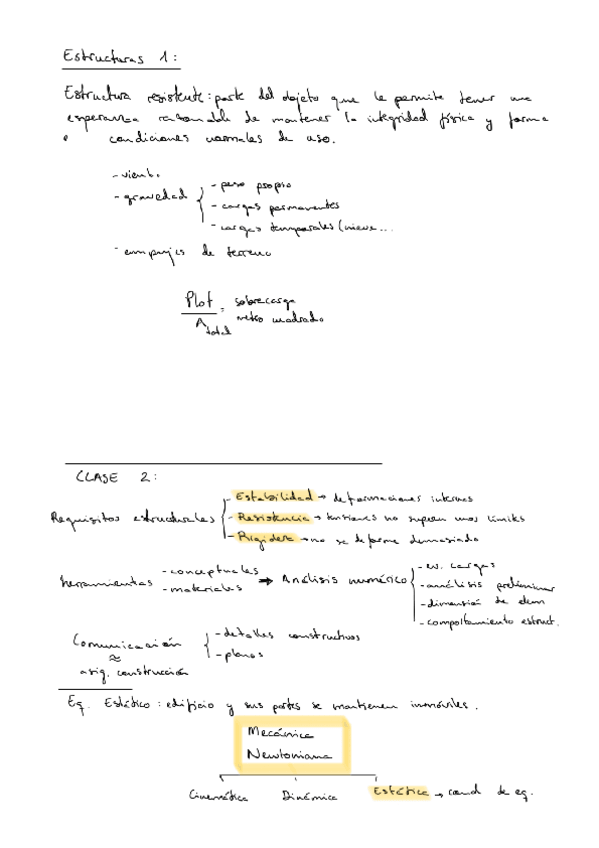 Estructuras 1:
Estructura resistente: parte del objeto que le permite tener una
esperanza razonable de mantener la integridad física y forma
condiciones normales de uso.
- vient.
- gravedad
- peso propio
- cargas permanentes
- cargas temporales (nieve...
- empujes de terreno
Ptot / Atotal = sobrecarga
metro cuadrado
CLASE 2:
Requisitos estructurales
- Estabilidad → deformaciones internas
- Resistencia → tensiones no superen unos límites
- Rigidez → no se deforme demasiado
herramientas
- conceptuales
- materiales
⇒ Análisis numérico
- ev. cargas
- análisis preliminar
- dimensión de elem
- comportamiento estruct.
Comunicación
≈
asig. construcción
- detalles constructivos
- planos
Eq. Estático: edificio y sus partes se mantienen inmóviles.
Mecánica
Newtoniana
Cinemática Dinámica Estática → cond de eq.